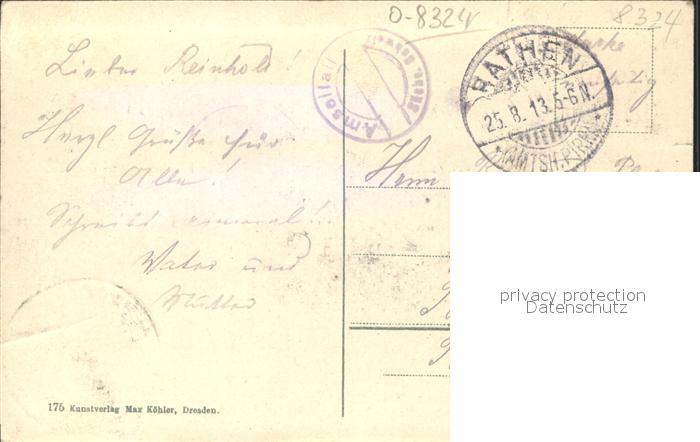 O-8324
8324
Lieber Reinhold!
Herzl Grüße für
Alle!
Schreibt einmal!!
Vater und
Mutter
Amselfall
Sächs. Schweiz
RATHEN
25.8.13.5-6N.
*(AMTSH.PIRNA)*
Marke
Herrn
privacy protection
Datenschutz
175 Kunstverlag Max Köhler, Dresden.